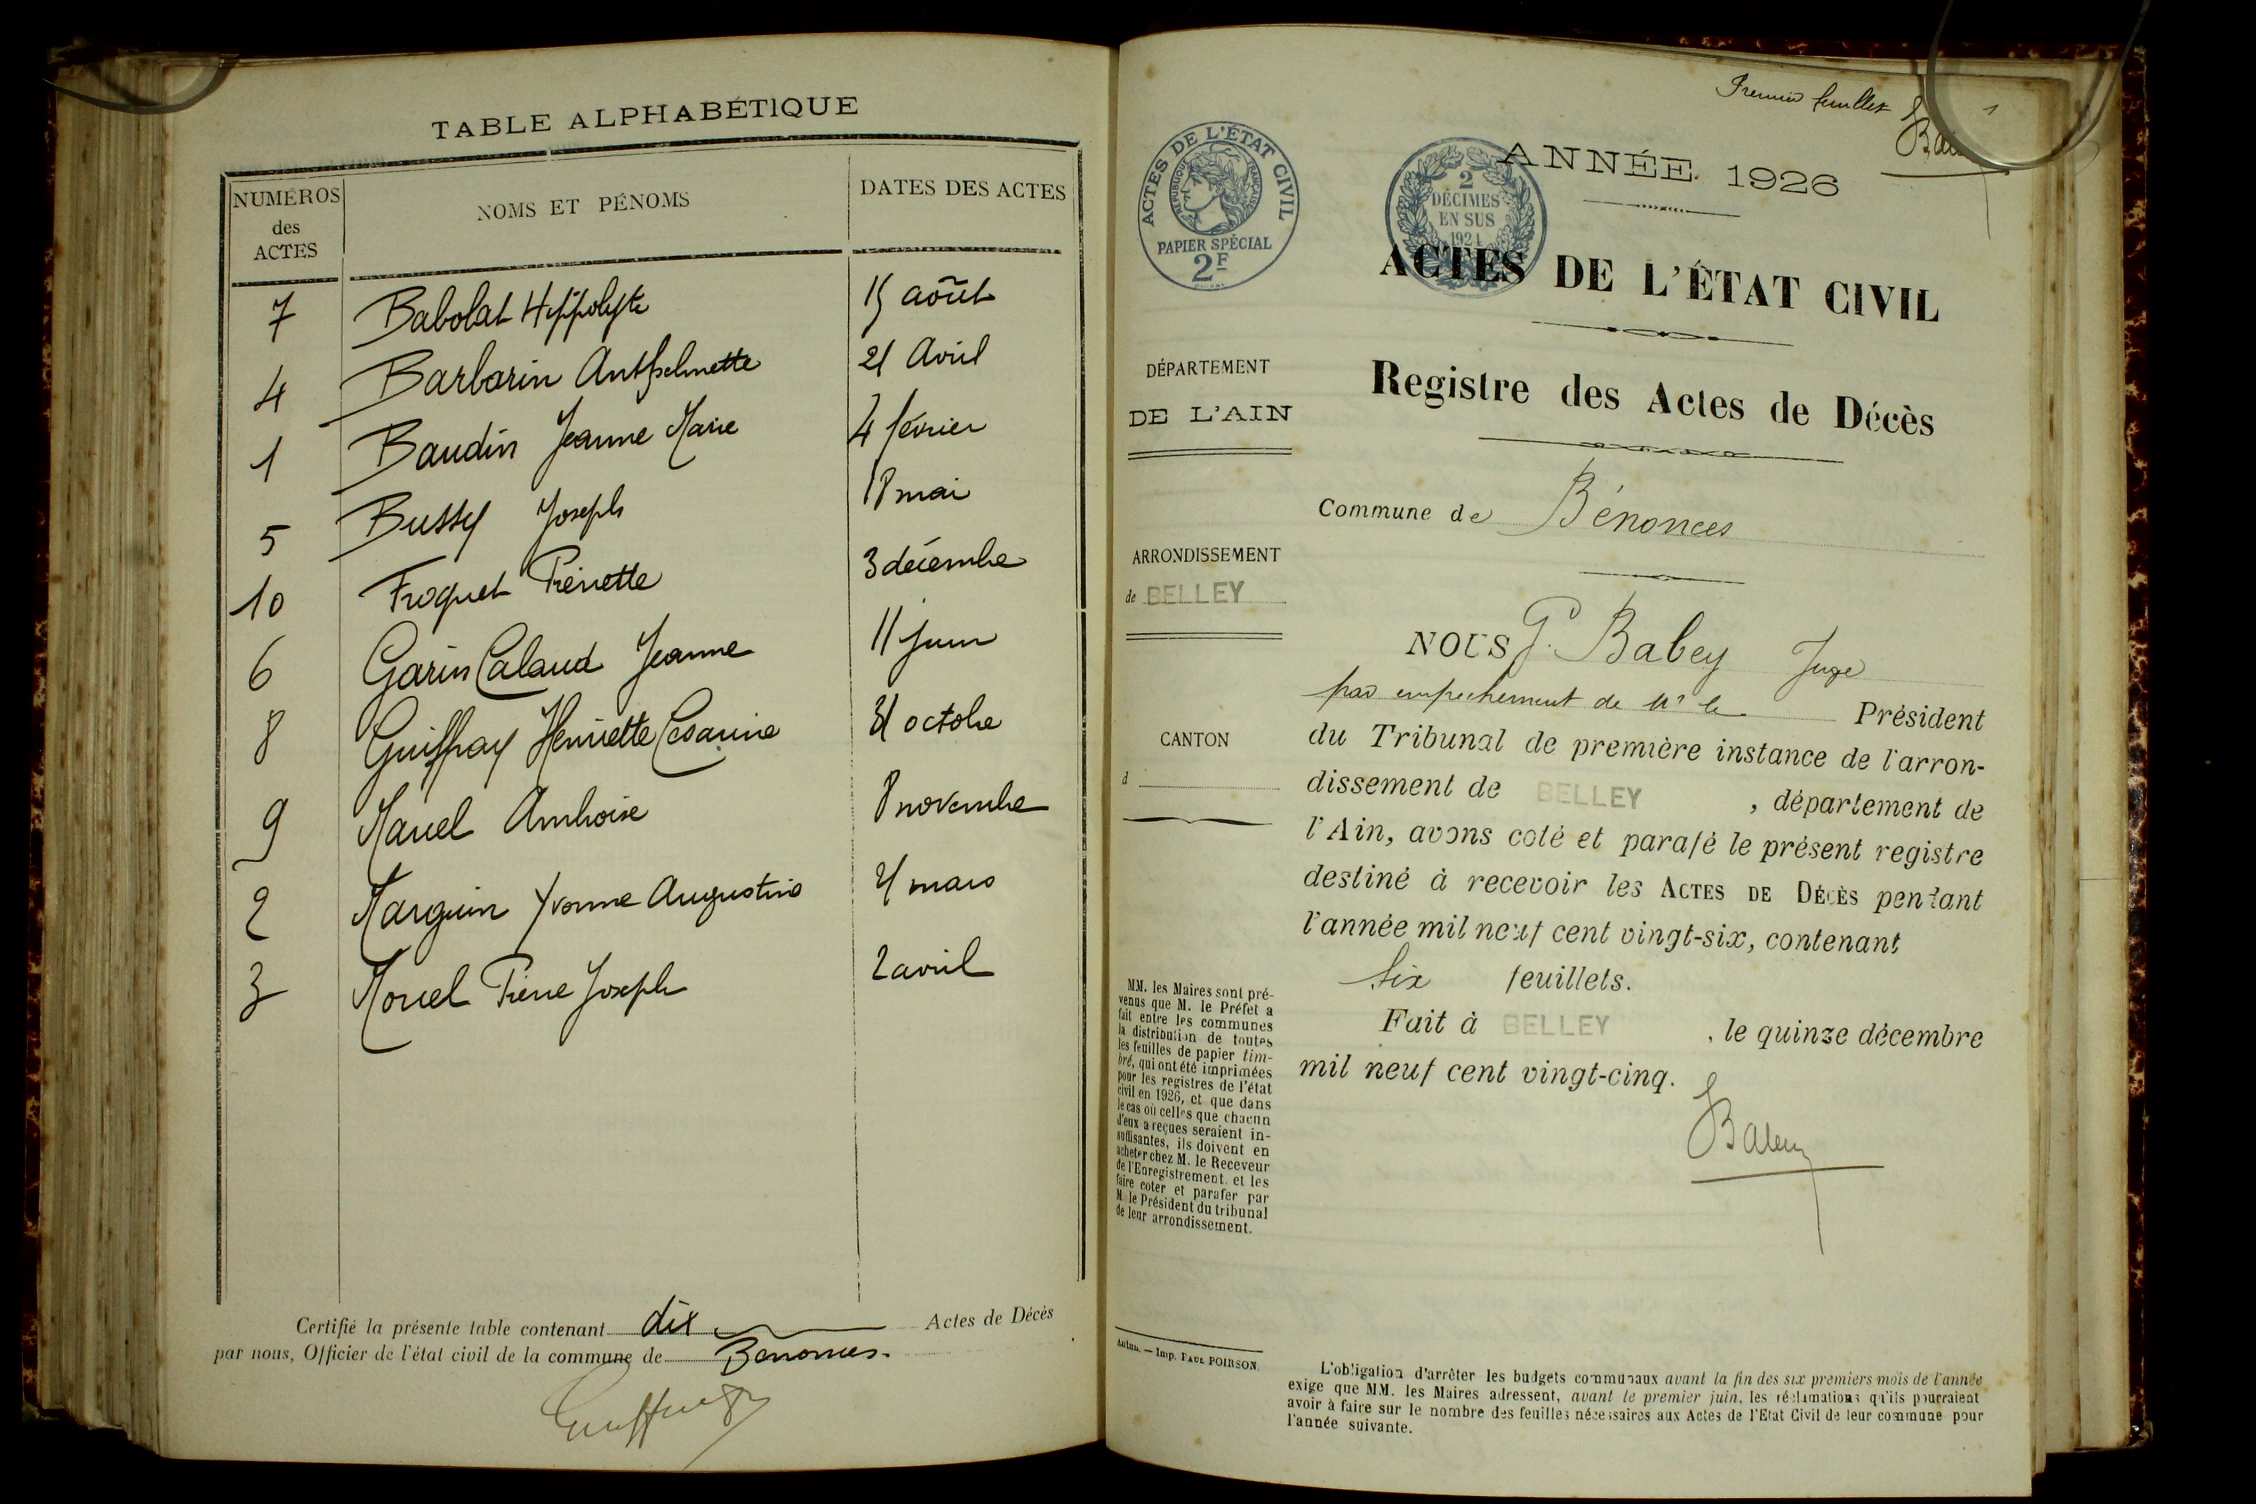 TABLE ALPHABÉTIQUE
NUMÉROS des ACTES
NOMS ET PÉNOMS
DATES DES ACTES
7 Babolat Hippolyte 15 août
4 Barbarin Anthelmette 21 Avril
1 Baudin Jeanne Marie 4 février
5 Bussy Joseph 18 mai
10 Froquet Pierrette 3 décembre
6 Garin Calaud Jeanne 11 juin
8 Guiffray Henriette Césarine 31 octobre
9 Marcel Ambroise 8 novembre
2 Marguin Yvonne Augustine mars
3 Morel Pierre Joseph 2 avril
Certifié la présente table contenant dix Actes de Décès
par nous, Officier de l'état civil de la commune de Bénonces.
Premier feuillet
1
ACTES DE L'ÉTAT CIVIL
RÉPUBLIQUE FRANÇAISE
PAPIER SPÉCIAL
2F
2
DÉCIMES
EN SUS
1924
ANNÉE 1926
ACTES DE L'ÉTAT CIVIL
Registre des Actes de Décès
DÉPARTEMENT
DE L'AIN
Commune de Bénonces
ARRONDISSEMENT
de BELLEY
CANTON
d
NOUS G. Babey Juge
par empechement de Mr le Président
du Tribunal de première instance de l'arron-
dissement de BELLEY, département de
l'Ain, avons coté et parafé le présent registre
destiné à recevoir les ACTES DE DÉCÈS pendant
l'année mil neuf cent vingt-six, contenant
Six feuillets.
Fait à BELLEY, le quinze décembre
mil neuf cent vingt-cinq.
Babey
MM. les Maires sont pré-
venus que M. le Préfet a
fait entre les communes
la distribution de toutes
les feuilles de papier tim-
bré, qui ont été imprimées
pour les registres de l'état
civil en 1926, et que dans
le cas où celles que chacun
d'eux a reçues seraient in-
suffisantes, ils doivent en
acheter chez M. le Receveur
de l'Enregistrement, et les
faire coter et parafer par
M. le Président du tribunal
de leur arrondissement.
Autun. — Imp. PAUL POIRSON.
L'obligation d'arrêter les budgets communaux avant la fin des six premiers mois de l'année
exige que MM. les Maires adressent, avant le premier juin, les réclamations qu'ils pourraient
avoir à faire sur le nombre des feuilles nécessaires aux Actes de l'Etat Civil de leur commune pour
l'année suivante.